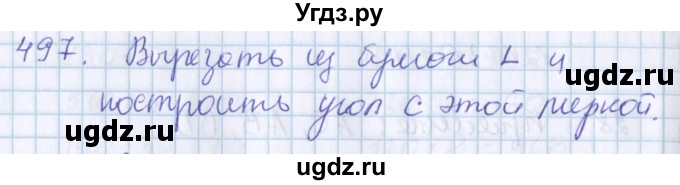 Угдз.ру
497. Вырезать из бумаги L и
построить угол с этой меркой.
ugdz.ru
ugdz.ru
ugdz.ru